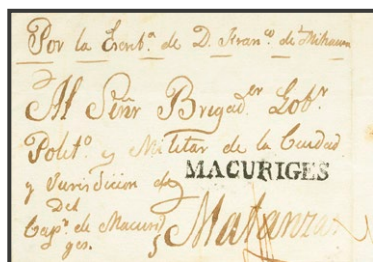 Por la Escnbª de D. Franco de Mihaun
Al Señr Brigader Gobr
Politº y Militar de la Ciudad
y Jurisdicion de
MACURIGES
Matanzas
Del
Capn de Macuri
ges.
5